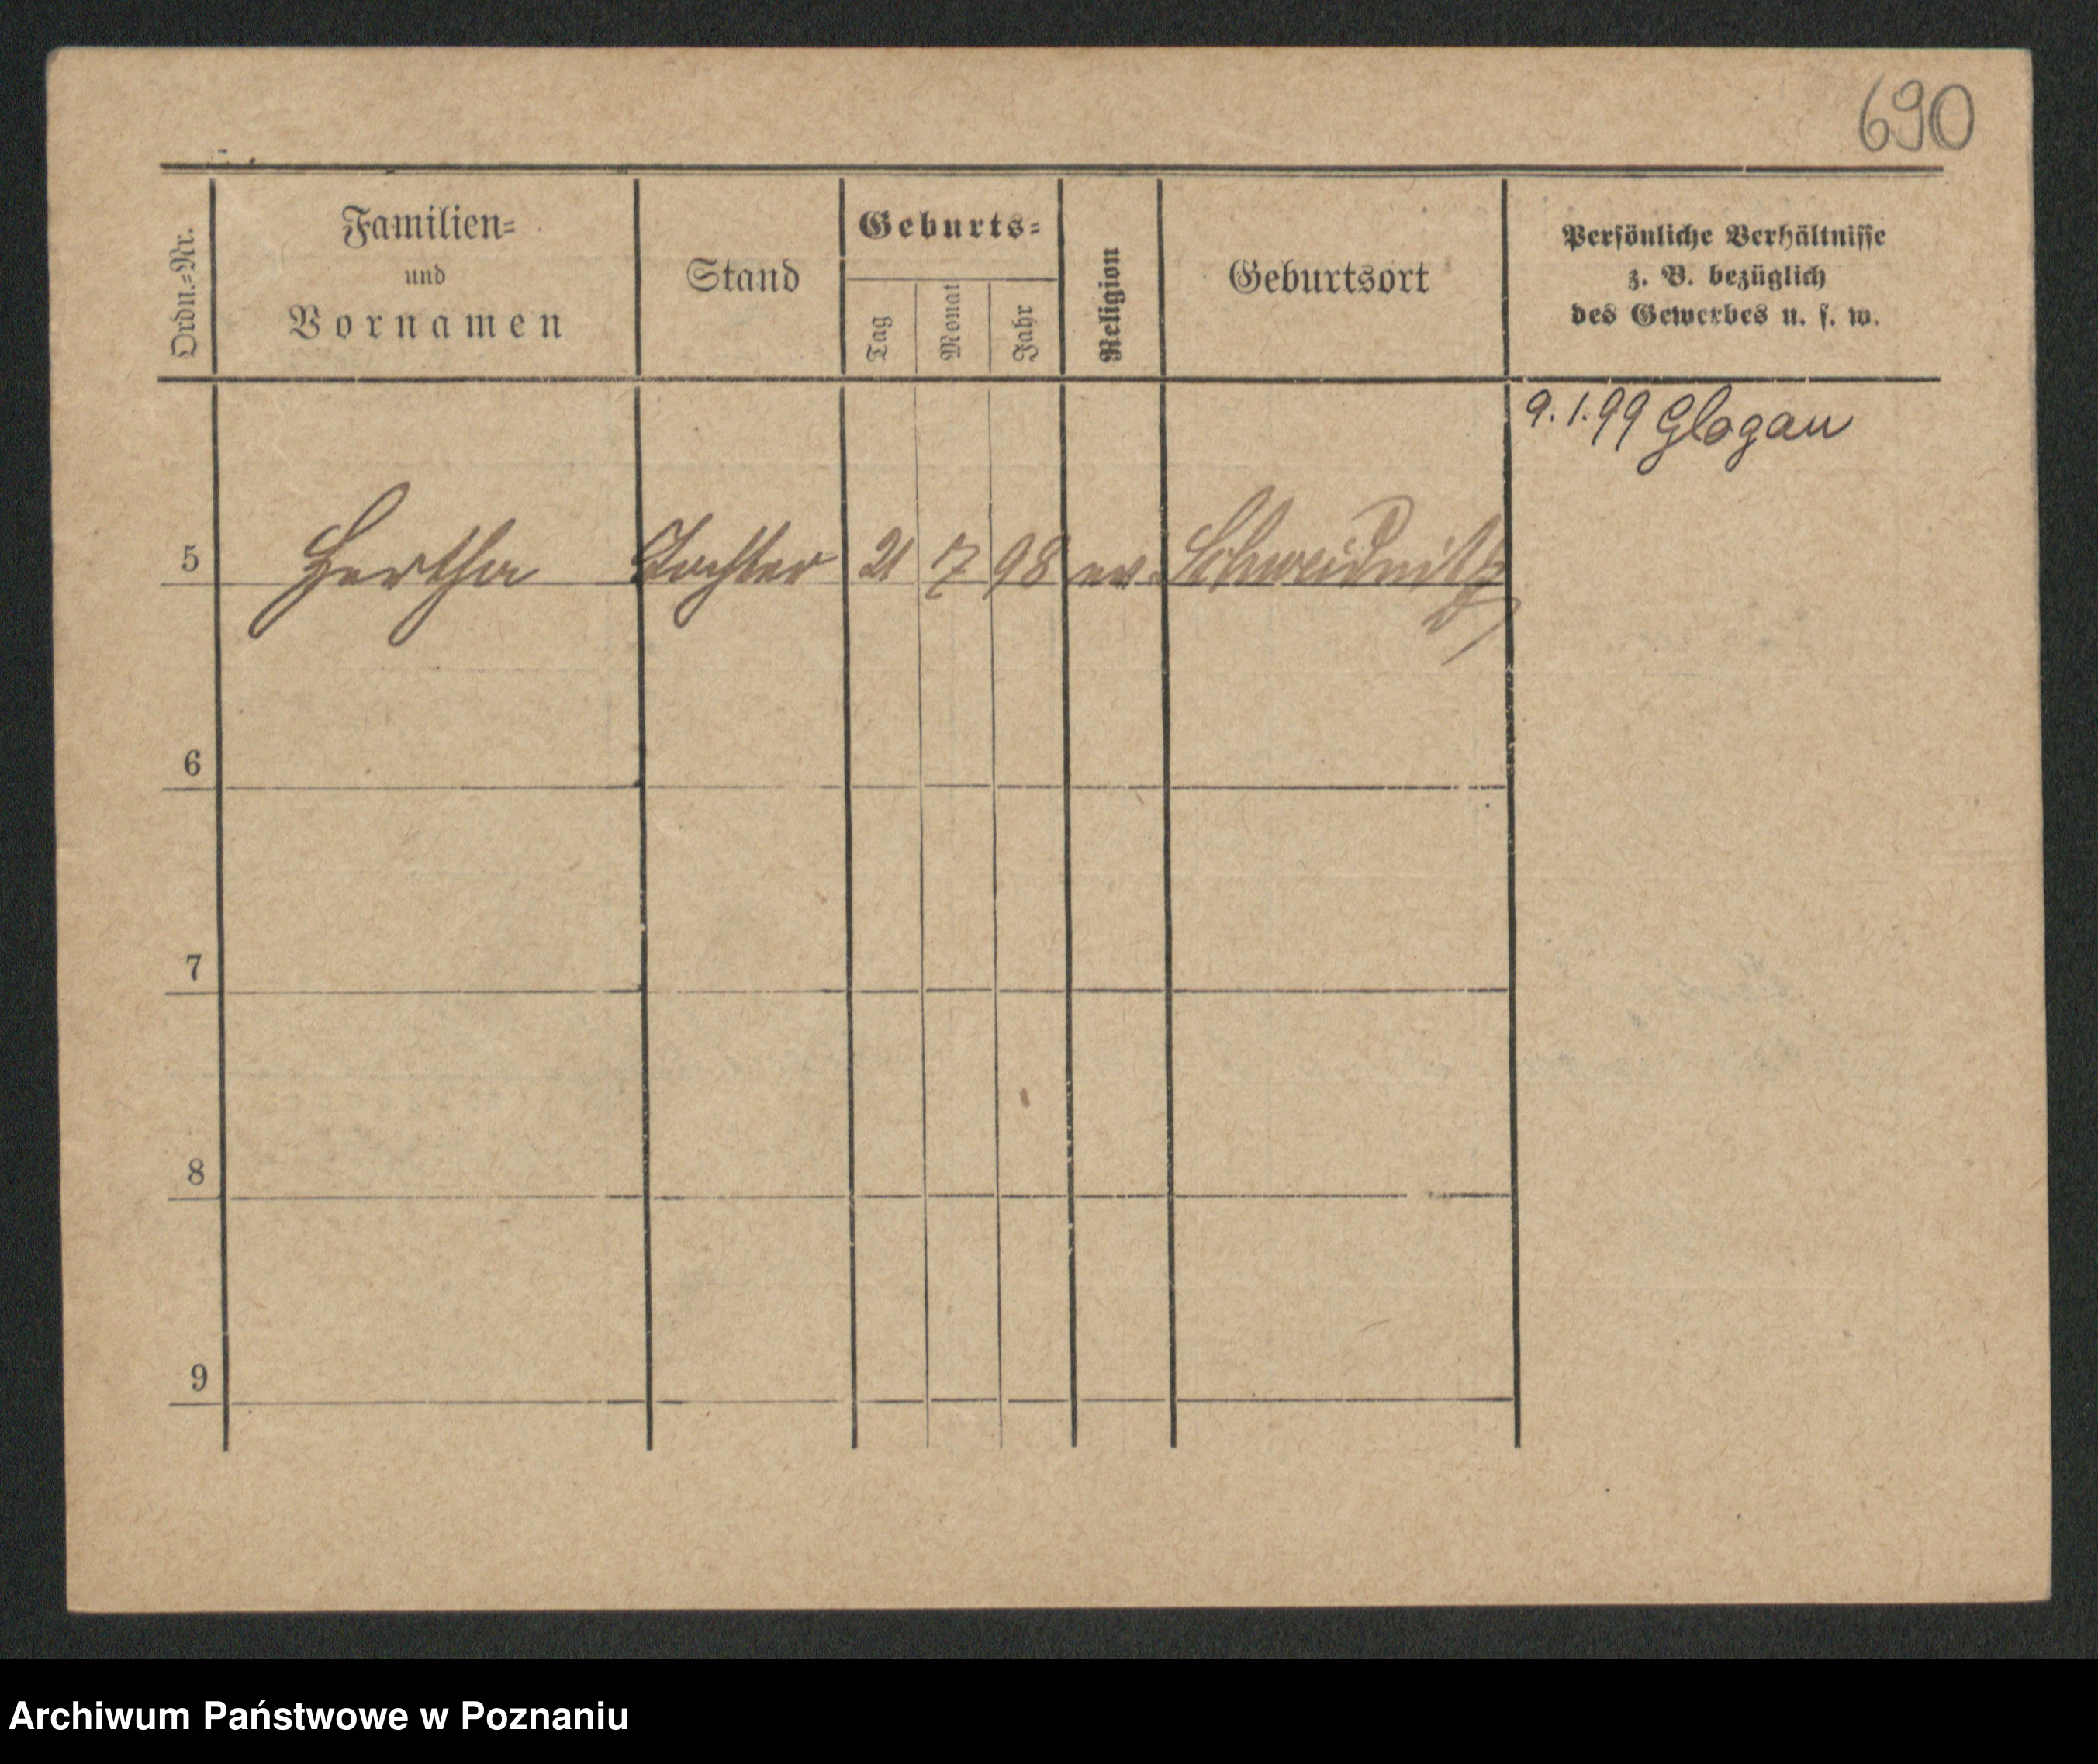 690
Ordn.=Nr.
Familien=
und
Vornamen
Stand
Geburts=
Tag
Monat
Jahr
Religion
Geburtsort
Persönliche Verhältnisse
z. B. bezüglich
des Gewerbes u. s. w.
9. 1. 99 Glogau
5 Hertha Tochter 21 7 98 ev. Schweidnitz
6
7
8
9
Archiwum Państwowe w Poznaniu